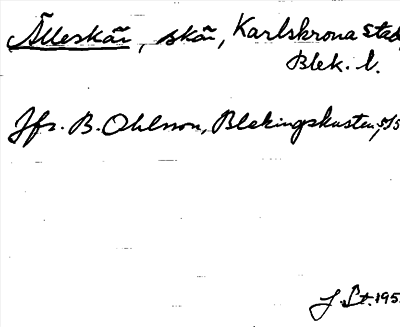 Älleskär, skär, Karlskrona stad,
Blek. l.
Jfr. B. Ohlsson, Blekingskusten,
J. St. 195